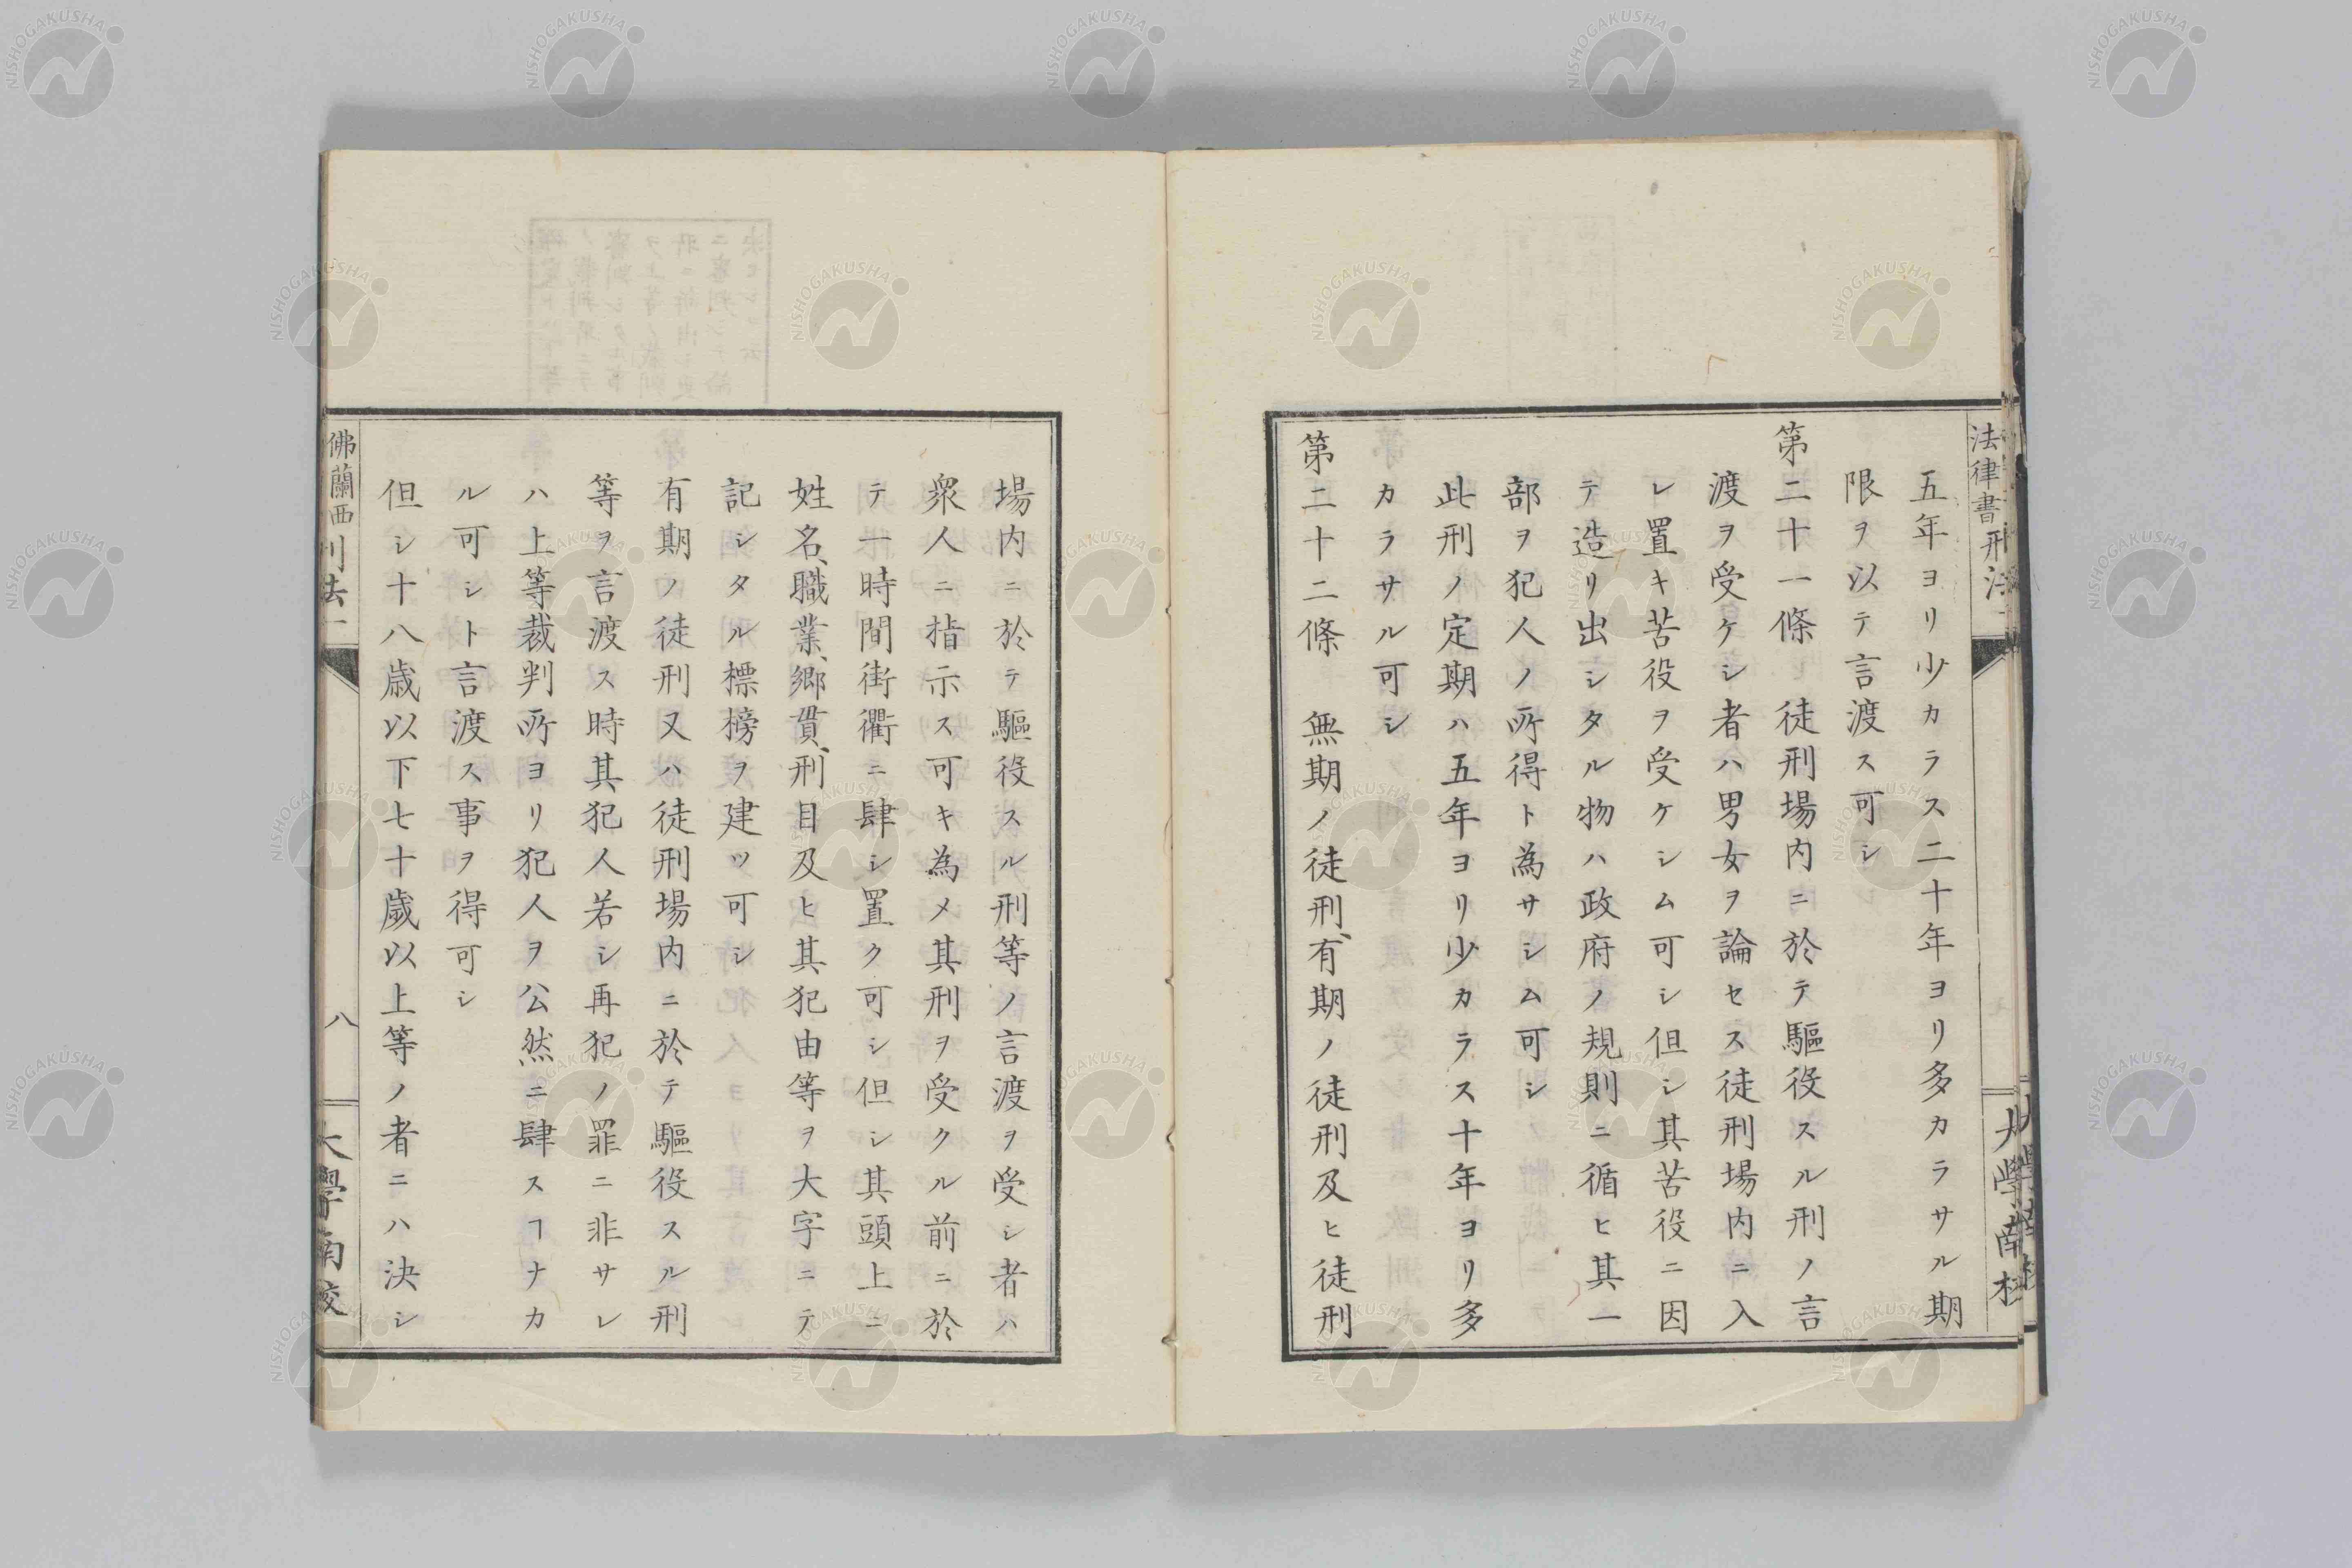 法律書刑法
大學南校
五年ヨリ少カラス二十年ヨリ多カラサル期
限ヲ以テ言渡ス可シ
第二十一條 徒刑場内ニ於テ驅役スル刑ノ言
渡ヲ受ケシ者ハ男女ヲ論セス徒刑場内ニ入
レ置キ苦役ヲ受ケシム可シ但シ其苦役ニ因
テ造リ出シタル物ハ政府ノ規則ニ循ヒ其一
部ヲ犯人ノ所得ト為サシム可シ
此刑ノ定期ハ五年ヨリ少カラス十年ヨリ多
カラサル可シ
第二十二條 無期ノ徒刑、有期ノ徒刑及ヒ徒刑
場内ニ於テ驅役スル刑等ノ言渡ヲ受シ者ハ
衆人ニ指示ス可キ為メ其刑ヲ受クル前ニ於
テ一時間街衢ニ肆シ置ク可シ但シ其頭上ニ
姓名、職業、鄉貫、刑目及ヒ其犯由等ヲ大字ニテ
記シタル標榜ヲ建ツ可シ
有期ノ徒刑又ハ徒刑場内ニ於テ驅役スル刑
等ヲ言渡ス時其犯人若シ再犯ノ罪ニ非サレ
ハ上等裁判所ヨリ犯人ヲ公然ニ肆スヿナカ
ル可シト言渡ス事ヲ得可シ
但シ十八歳以下七十歳以上等ノ者ニハ決シ
佛蘭西刑法一
八
大學南校
NISHOGAKUSHA